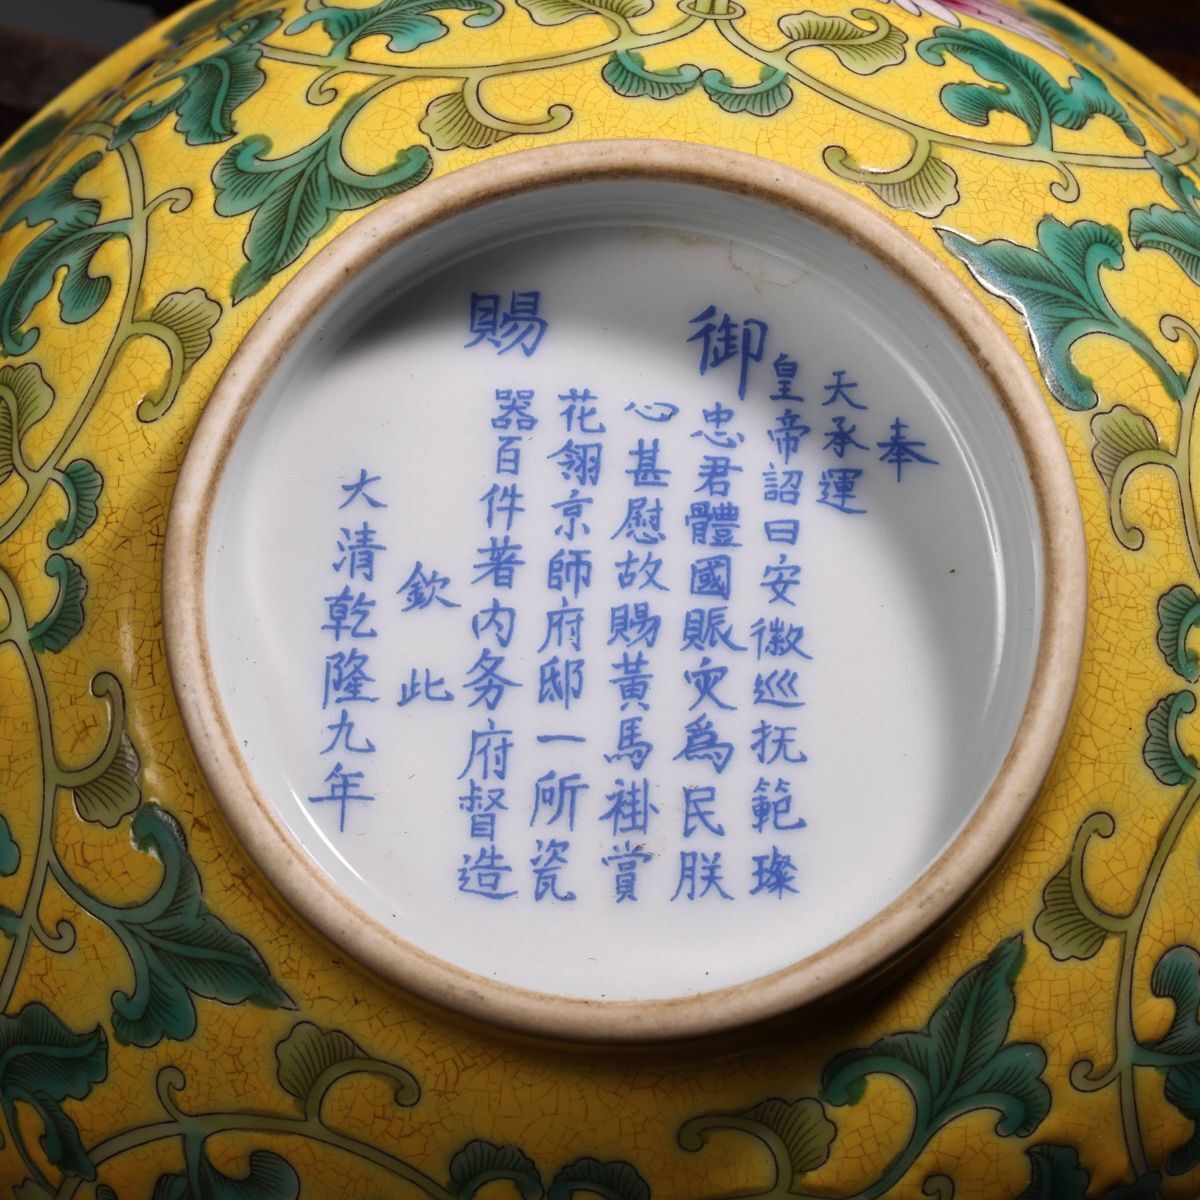 奉
天承運
皇帝詔曰安徽巡抚範璨
御
忠君體國賑灾爲民朕
心甚慰故賜黃馬褂賞
花翎京師府邸一所瓷
賜
器百件著内务府督造
欽此
大清乾隆九年